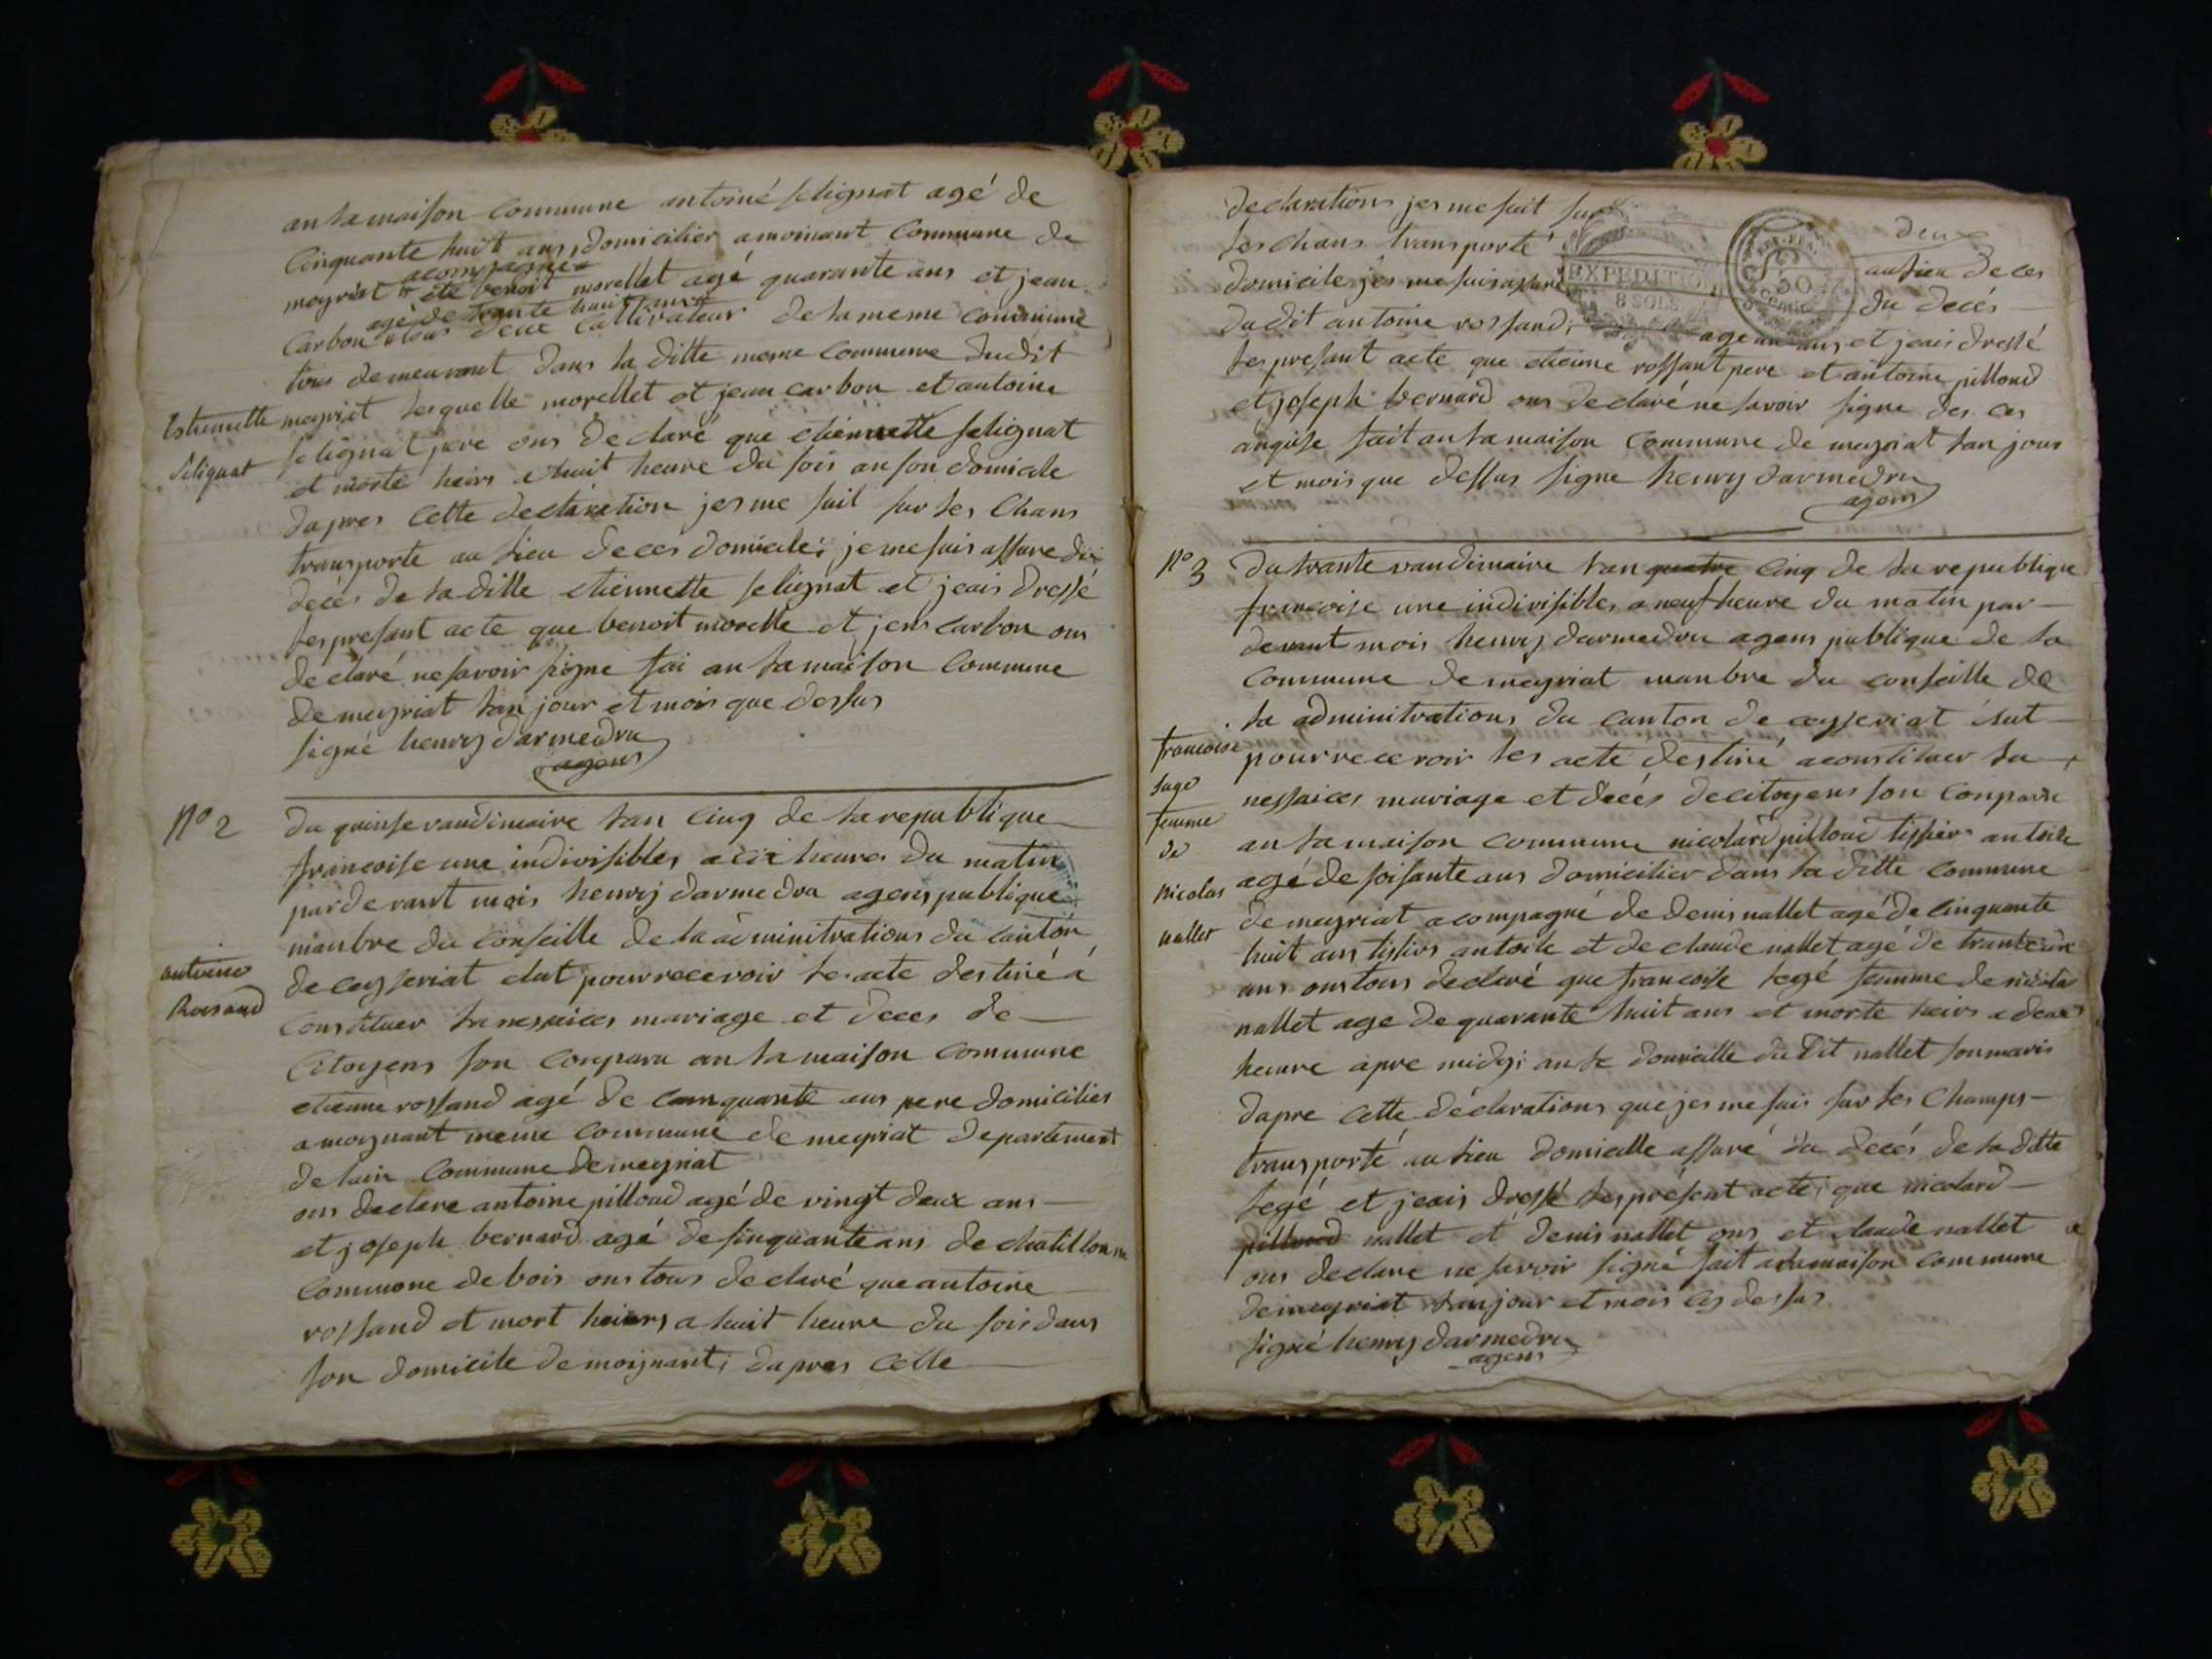 an la maison Commune antoine selignat agé de
Cinquante huit ans domicilier amoinant Commune de
acompagné
meyriat ete benoit morellet agé quarante ans et jean
agé de trante huit ans
Carbon tous deux Cultivateur de la meme Commune
tous demeurant dans la ditte meme Commune dudit
meyriat lesquelle morellet et jean carbon et antoine
Estiennette
Selignat
selignat pere ons declaré que etiennette selignat
et morte heirs a huit heure du soir an son domicile
dapres Cette declaration jes me suit sur les Chans
transporte au lieu de ces domicile; je me suis assure du
decès de la ditte etiennette selignat et jeais dressé
les presant acte que benoit morelle et jean Carbon ons
declaré ne savoir signe fai an la maison Commune
de meyriat lan jour et mois que dessus
signé henry darmedru
agens
N° 2
du quinse vandimaire lan Cinq de la republique
francoise une indivisibles a dix heures du matin
par devant mois henry darmedru agens publique
manbre du Conseille de la administrations du Canton
de ceyseriat elut pour recevoir les acte destiné a
antoine
Rossand
Constituer la nessaices mariage et deces de
Citoyens son Conparu an la maison Commune
etienne rossand agé de Cinquante ans pere domicilier
a moignant meme Commune de meyriat departement
de lain Commune de meyriat
ons declare antoine pilloud agé de vingt deux ans
et joseph bernard agé de sinquante ans de chatillonne
Commune de bois ons tous declaré que antoine
rossand et mort heiers a huit heure du soir dans
son domicile de moignant; dapres Celle
declarations jes me suit sur
les chans transporté
deux
au lieu de ces
EXPEDITION
8 SOLS
50
CENT
domicile jes me suis assure
du decés
du dit antoine rossand; age un ans et jeais dressé
les presant acte que etienne rossant pere et antoine pilloud
et joseph bernard ons declaré ne savoir signe des ces
anquise fait an la maison Commune de meyriat lan jour
et mois que dessus signe henry darmedru
agens
N° 3
du trante vandimaire lan quatre Cinq de la republique
francoise une indivisibles a neuf heure du matin par
devant mois henry darmedru agens publique de la
Commune de meyriat manbre du conseille de
la adminitrations du Canton de ceyseriat élut
francoise
legé
femme
de
Nicolas
nallet
pour recevoir les acte destiné a constituer la
nessaices mariage et decés de citoyens son Conparu
an la maison Commune nicolard pilloud tissier antoile
agé de soisante ans domicilier dans la ditte Commune
de meyriat acompagné de denis nallet agé de Cinquante
huit ans tissiers antoile et de claude nallet agé de trante une
ans ons tous declaré que francoise legé femme de nicolas
nallet age de quarante huit ans et morte heirs a deux
heure apre midy; an le domicille du dit nallet son maris
dapre Cette déclarations que jes me suis sur les Champs
transporté au lieu domicille assuré du decés de la ditte
legé et jeais dressé les présent acte; que nicolard
pilloud nallet et denis nallet ons et claude nallet
ons declare ne savoir signé fait a la maison Commune
de meyriat lan jour et mois cy dessus
signé henry darmedru
agens